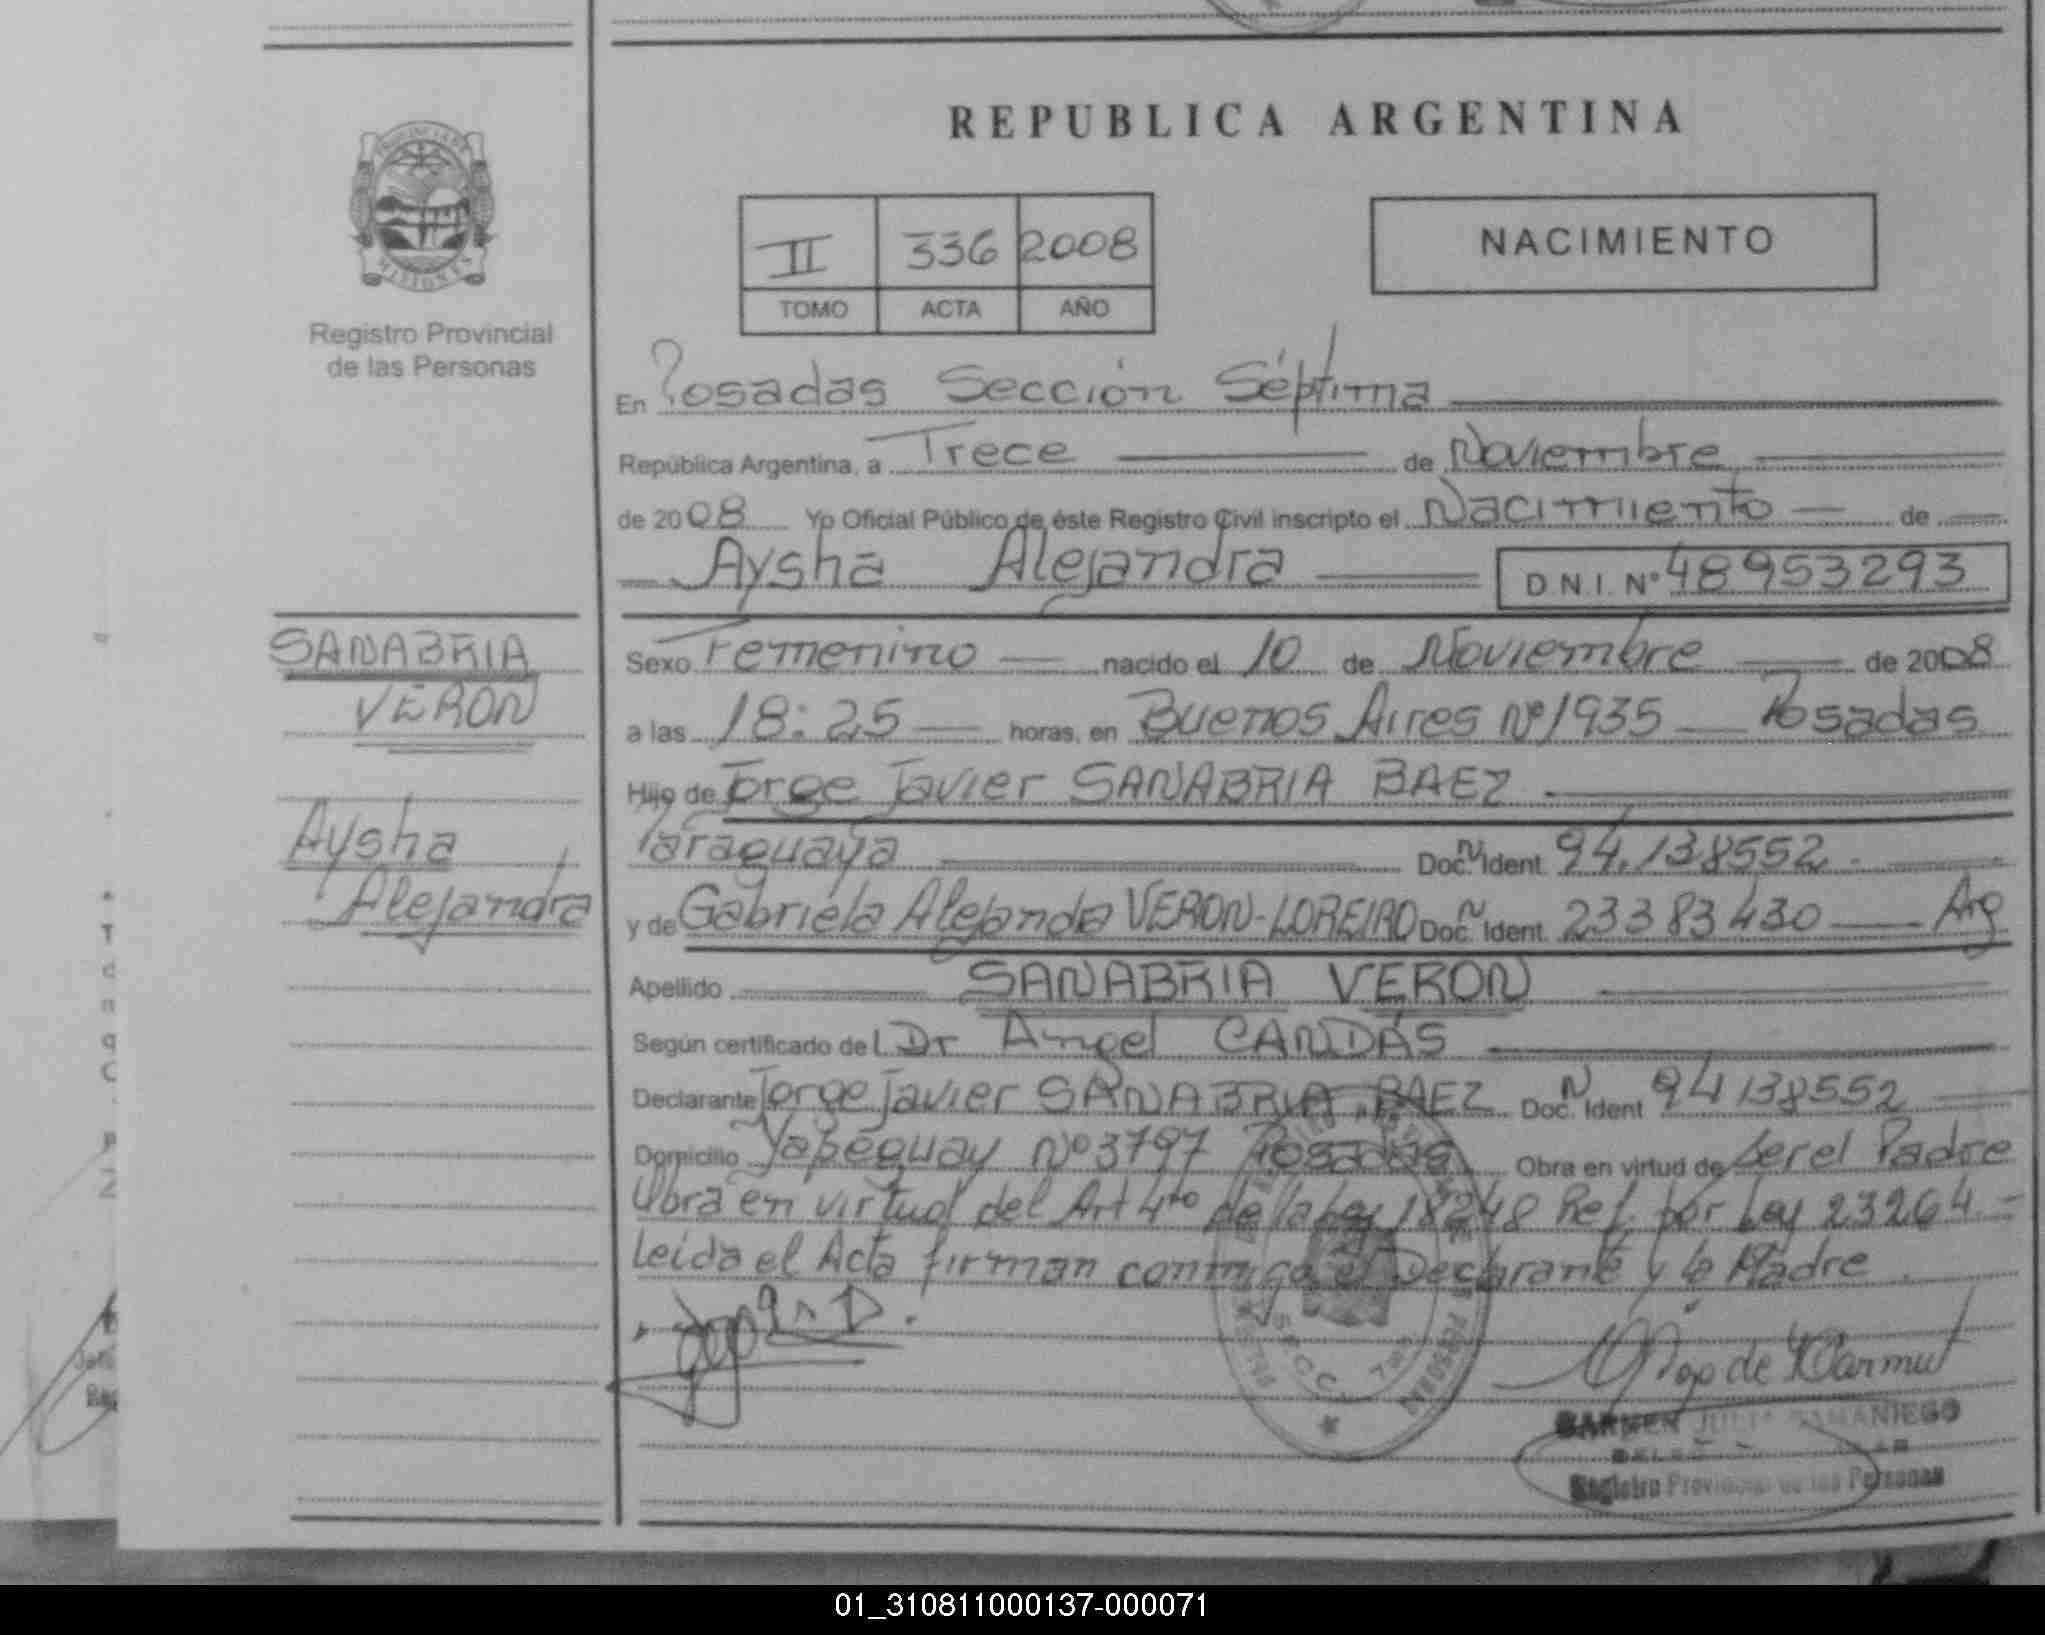 REPUBLICA ARGENTINA
PROVINCIA DE
MISIONES
Registro Provincial
de las Personas
II 336 2008
TOMO ACTA AÑO
NACIMIENTO
En Posadas Sección Séptima
República Argentina, a Trece de Noviembre
de 2008 Yo Oficial Público de éste Registro Civil inscripto el Nacimiento de
Aysha Alejandra D.N.I. Nº 48953293
SANABRIA
VERON
Aysha
Alejandra
Sexo Femenino nacido el 10 de Noviembre de 2008
a las 18:25 horas, en Buenos Aires Nº 1935 Posadas
Hijo de Jorge Javier SANABRIA BAEZ
Paraguaya Doc. Ident. 94.138552
y de Gabriela Alejandra VERON-LOREIRO Doc. Ident. 23383430 Arg
Apellido SANABRIA VERON
Según certificado del Dr Angel CANDÁS
Declarante Jorge Javier SANABRIA BAEZ Doc. Ident 94138552
Domicilio Yapeguay Nº 3797 Posadas Obra en virtud de Serel Padre
Obra en virtud del Art 4to de la Ley 18248 Ref. por Ley 23264.=
Leida el Acta firman conmigo el Declarante y la Madre
SECC. 7ma
CARMEN JULIA SAMANIEGO
Registro Provincial de las Personas
01_310811000137-000071